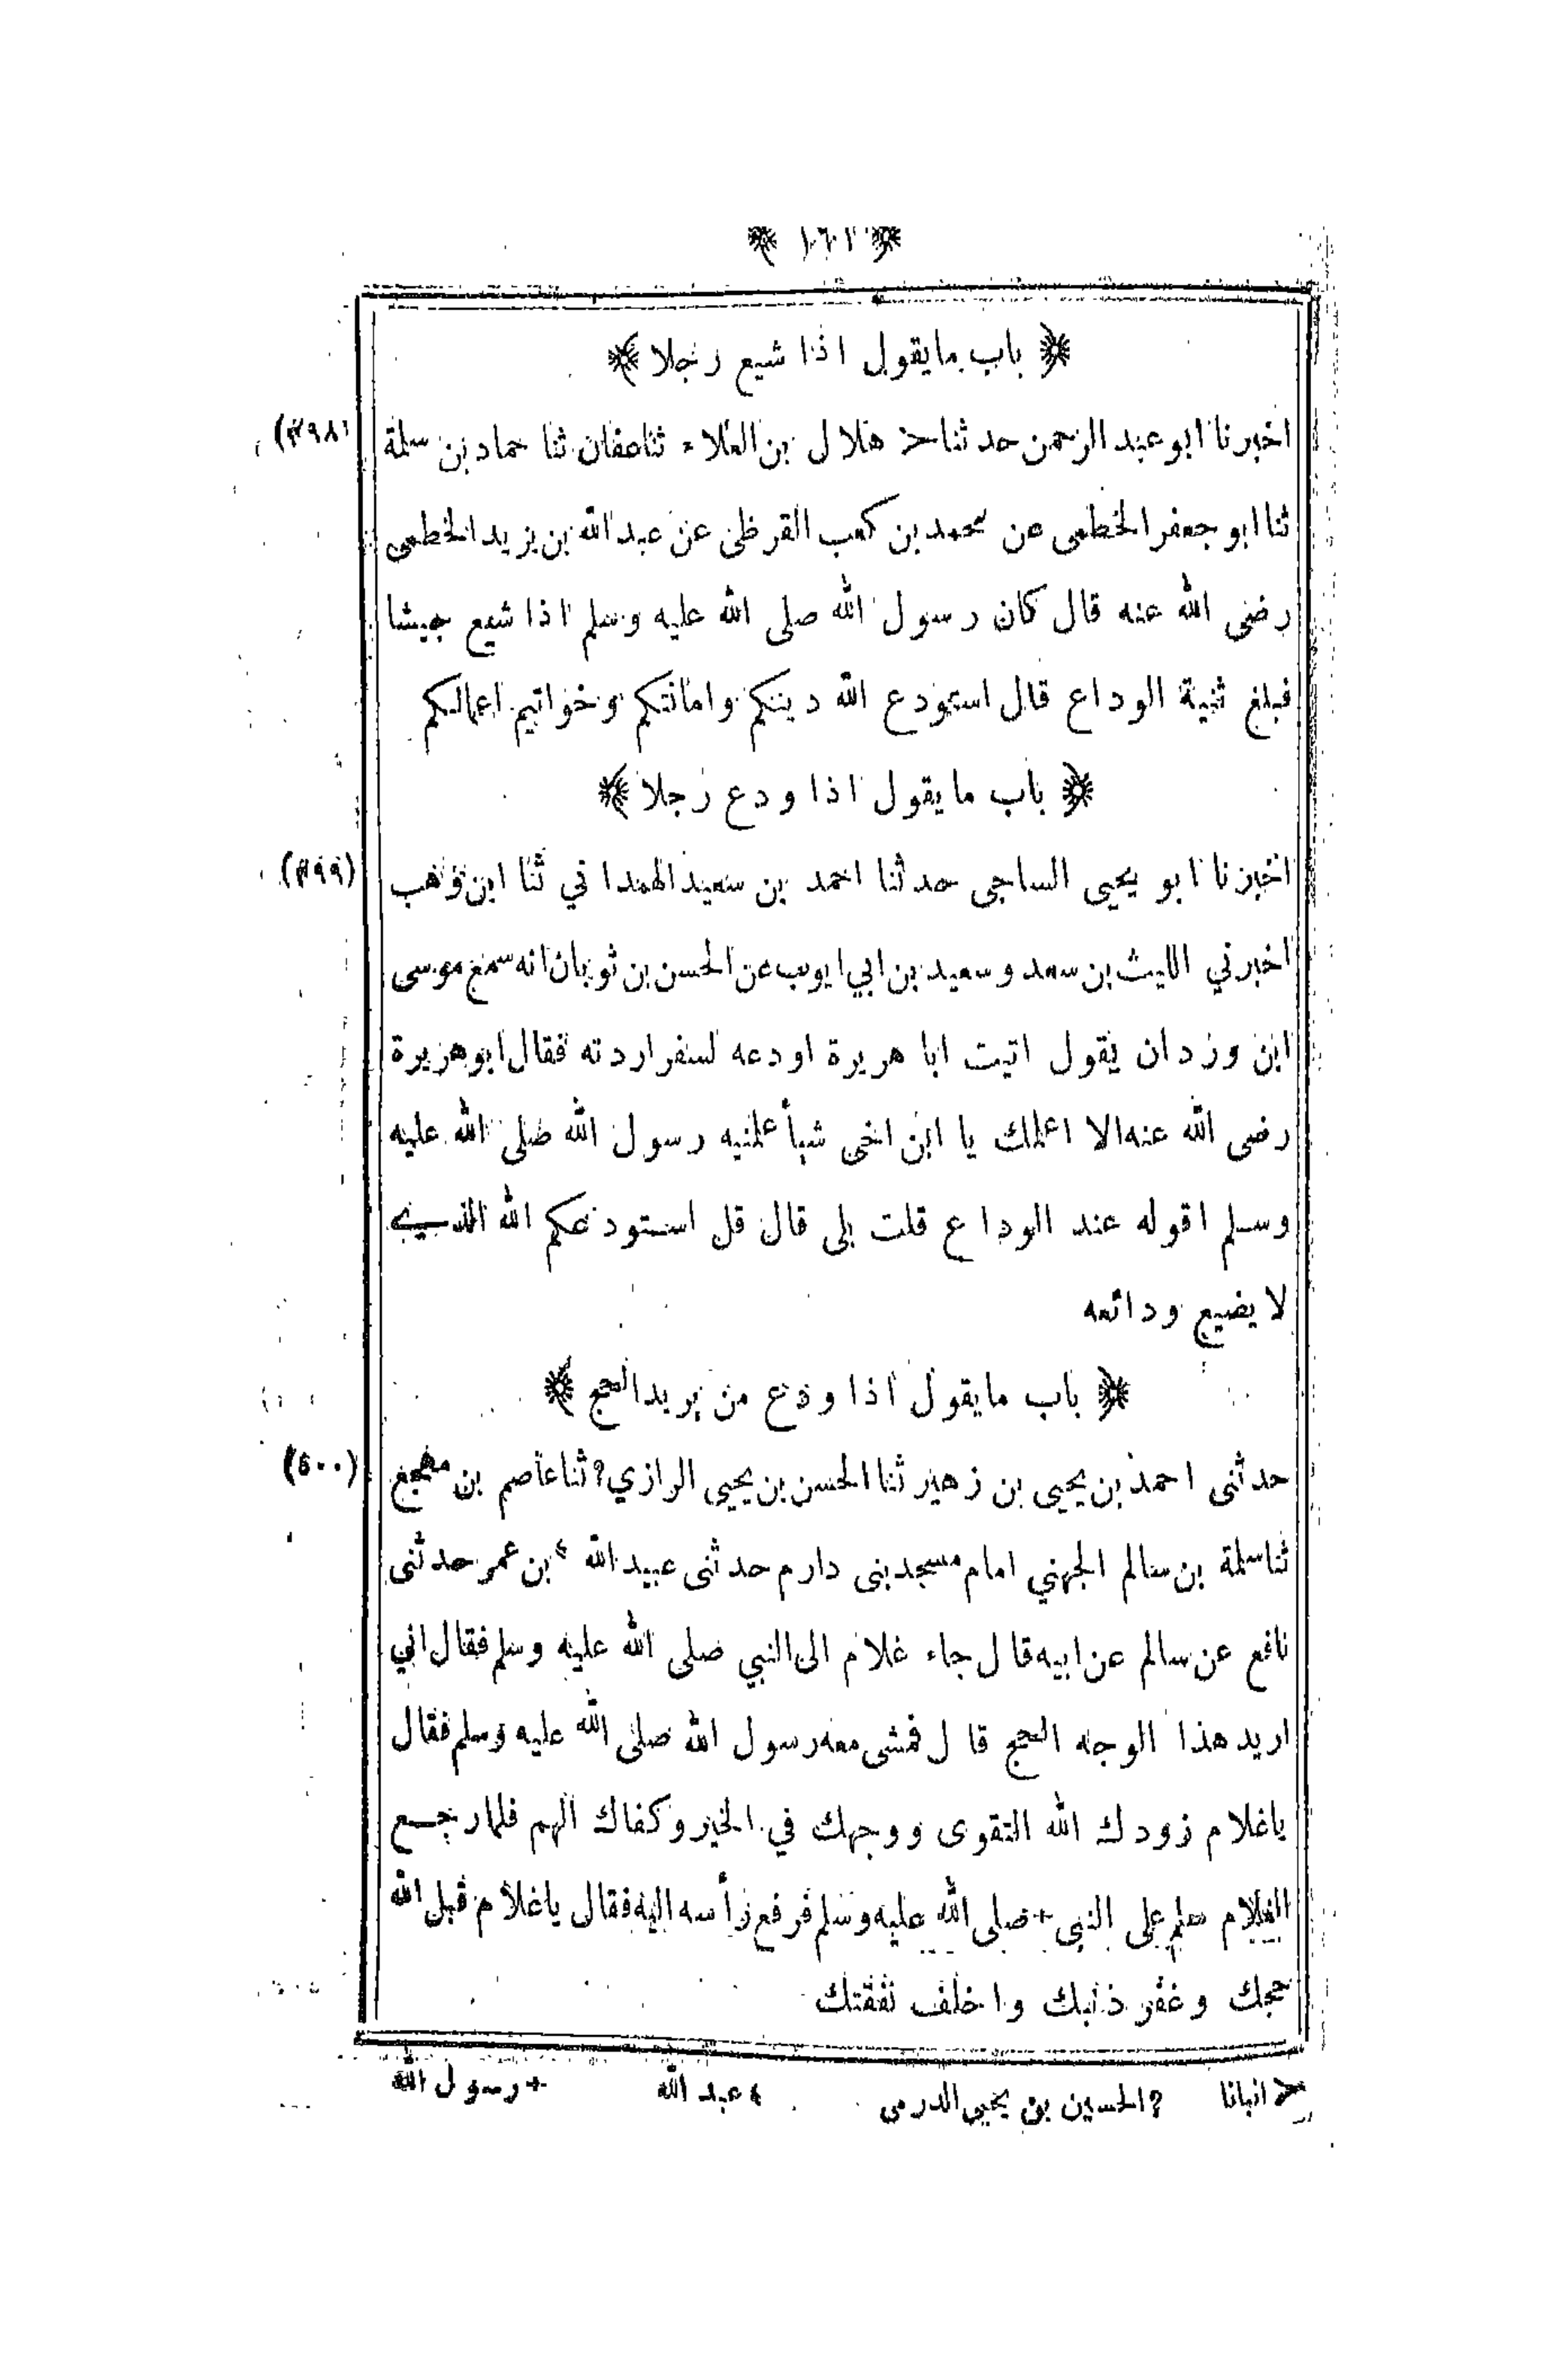 ﴿ باب ما يقول اذا شيع رجلا ﴾
اخبرنا ابو عبد الرحمن حدثنا < هلال بن العلاء ثنا عفان ثنا حماد بن سلمة (٤٩٨)
ثنا ابو جعفر الخطمى عن محمد بن كعب القرظى عن عبد الله بن يزيد الخطمى
رضى الله عنه قال كان رسول الله صلى الله عليه وسلم اذا شيع جيشا
فبلغ ثنية الوداع قال استودع الله دينكم وامانتكم وخواتيم اعمالكم
﴿ باب ما يقول اذا ودع رجلا ﴾
اخبرنا ابو يحيى الساجى حدثنا احمد بن سعيد الهمداني ثنا ابن وهب (٤٩٩)
اخبرني الليث بن سعد وسعيد بن ابي ايوب عن الحسن بن ثوبان انه سمع موسى
ابن وردان يقول اتيت ابا هريرة اودعه لسفر اردته فقال ابو هريرة
رضى الله عنه الا اعلمك يا ابن اخى شيأ علمنيه رسول الله صلى الله عليه
وسلم اقوله عند الوداع قلت بلى قال قل استودعكم الله الذي
لا يضيع ودائعه
﴿ باب ما يقول اذا ودع من يريد الحج ﴾
حدثنى احمد بن يحيى بن زهير ثنا الحسن بن يحيى الرازي ? ثنا عاصم بن مهجع (٥٠٠)
ثنا سلمة بن سالم الجهني امام مسجد بنى دارم حدثنى عبيد الله ء بن عمر حدثنى
نافع عن سالم عن ابيه قال جاء غلام الى النبي صلى الله عليه وسلم فقال اني
اريد هذا الوجه الحج قال فمشى معه رسول الله صلى الله عليه وسلم فقال
يا غلام زودك الله التقوى ووجهك في الخير وكفاك الهم فلما رجع
الغلام سلم على النبى + صلى الله عليه وسلم فرفع رأسه اليه فقال يا غلام قبل الله
حجك وغفر ذنبك واخلف نفقتك
< انبانا ? الحسين بن يحيى الدرمى ء عبد الله + رسول الله